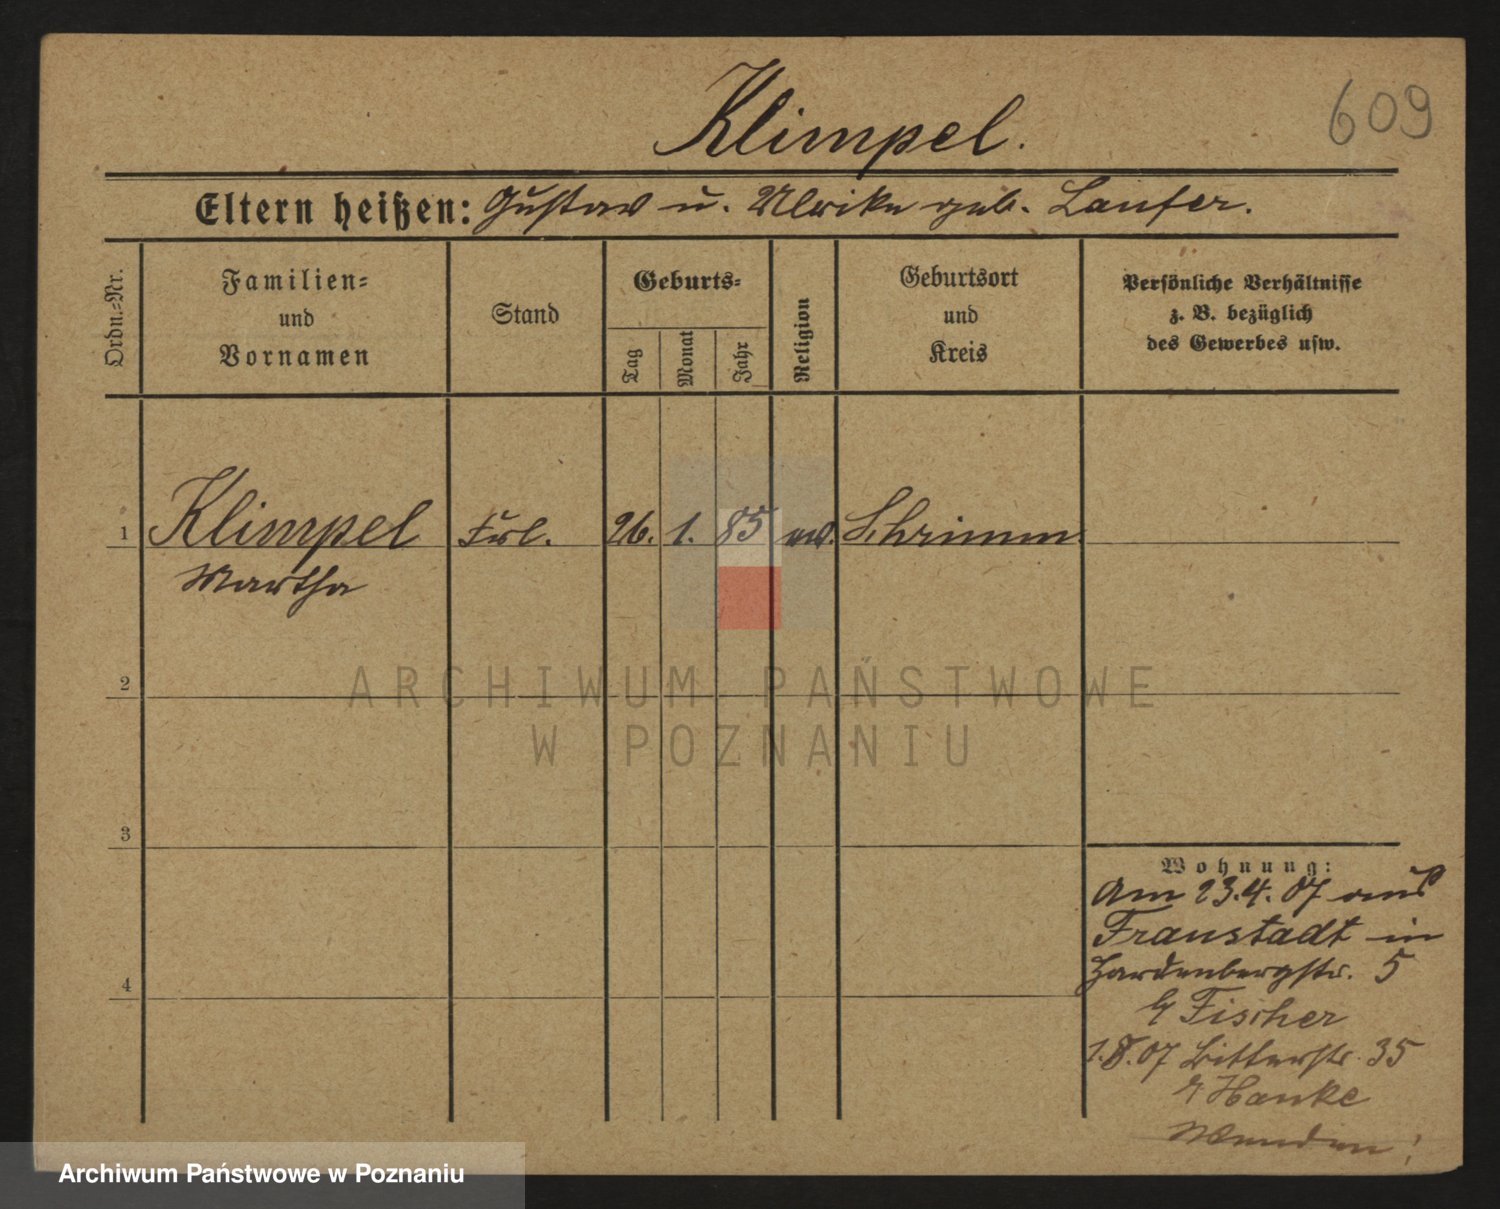 609
Klimpel.
Eltern heißen: Gustav u. Ulrike geb. Laufer.
Ordn.=Nr.
Familien=
und
Vornamen
Stand
Geburts=
Tag
Monat
Jahr
Religion
Geburtsort
und
Kreis
Persönliche Verhältnisse
z. B. bezüglich
des Gewerbes usw.
1 Klimpel Frl. 26. 1. 85 ev. Schrimm.
Martha
2
ARCHIWUM PAŃSTWOWE
W POZNANIU
3
Wohnung:
Am 23.4.07 aus
Fraustadt in
Hardenbergstr. 5
4
b/ Fischer
1.8.07 Ritterstr. 35
b/ Hanke
Wenden!
Archiwum Państwowe w Poznaniu